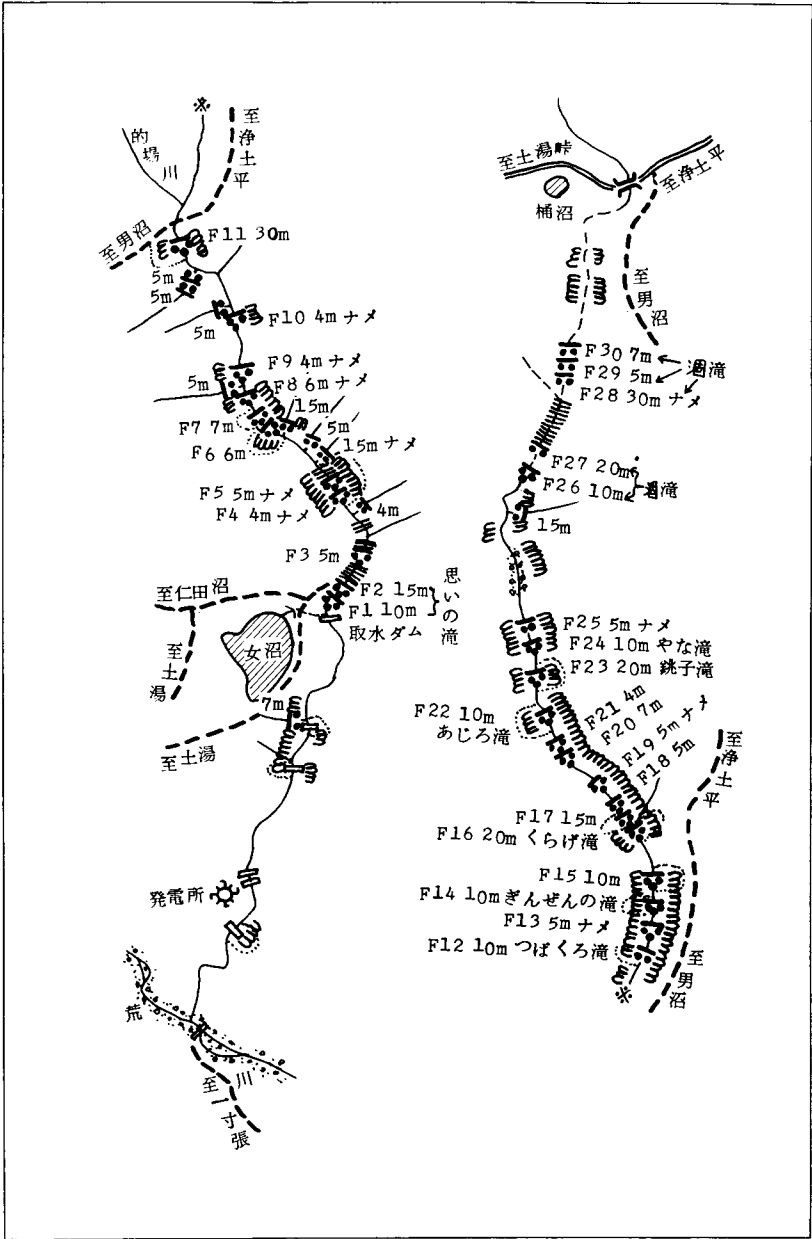 ※
的場川
至浄土平
至男沼
F11 30m
5m
5m
5m
F10 4mナメ
F9 4mナメ
5m
F8 6mナメ
15m
F7 7m
5m
F6 6m
15mナメ
F5 5mナメ
F4 4mナメ
4m
F3 5m
F2 15m
F1 10m
思いの滝
取水ダム
至仁田沼
至土湯
女沼
7m
至土湯
発電所
荒川
至一寸張
至土湯峠
至浄土平
桶沼
至男沼
F30 7m
F29 5m
F28 30mナメ
涸滝
F27 20m
F26 10m
涸滝
15m
F25 5mナメ
F24 10mやな滝
F23 20m銚子滝
F22 10m
あじろ滝
F21 4m
F20 7m
F19 5mナメ
F18 5m
F17 15m
F16 20mくらげ滝
F15 10m
F14 10mぎんぜんの滝
F13 5mナメ
F12 10mつばくろ滝
至浄土平
至男沼
※